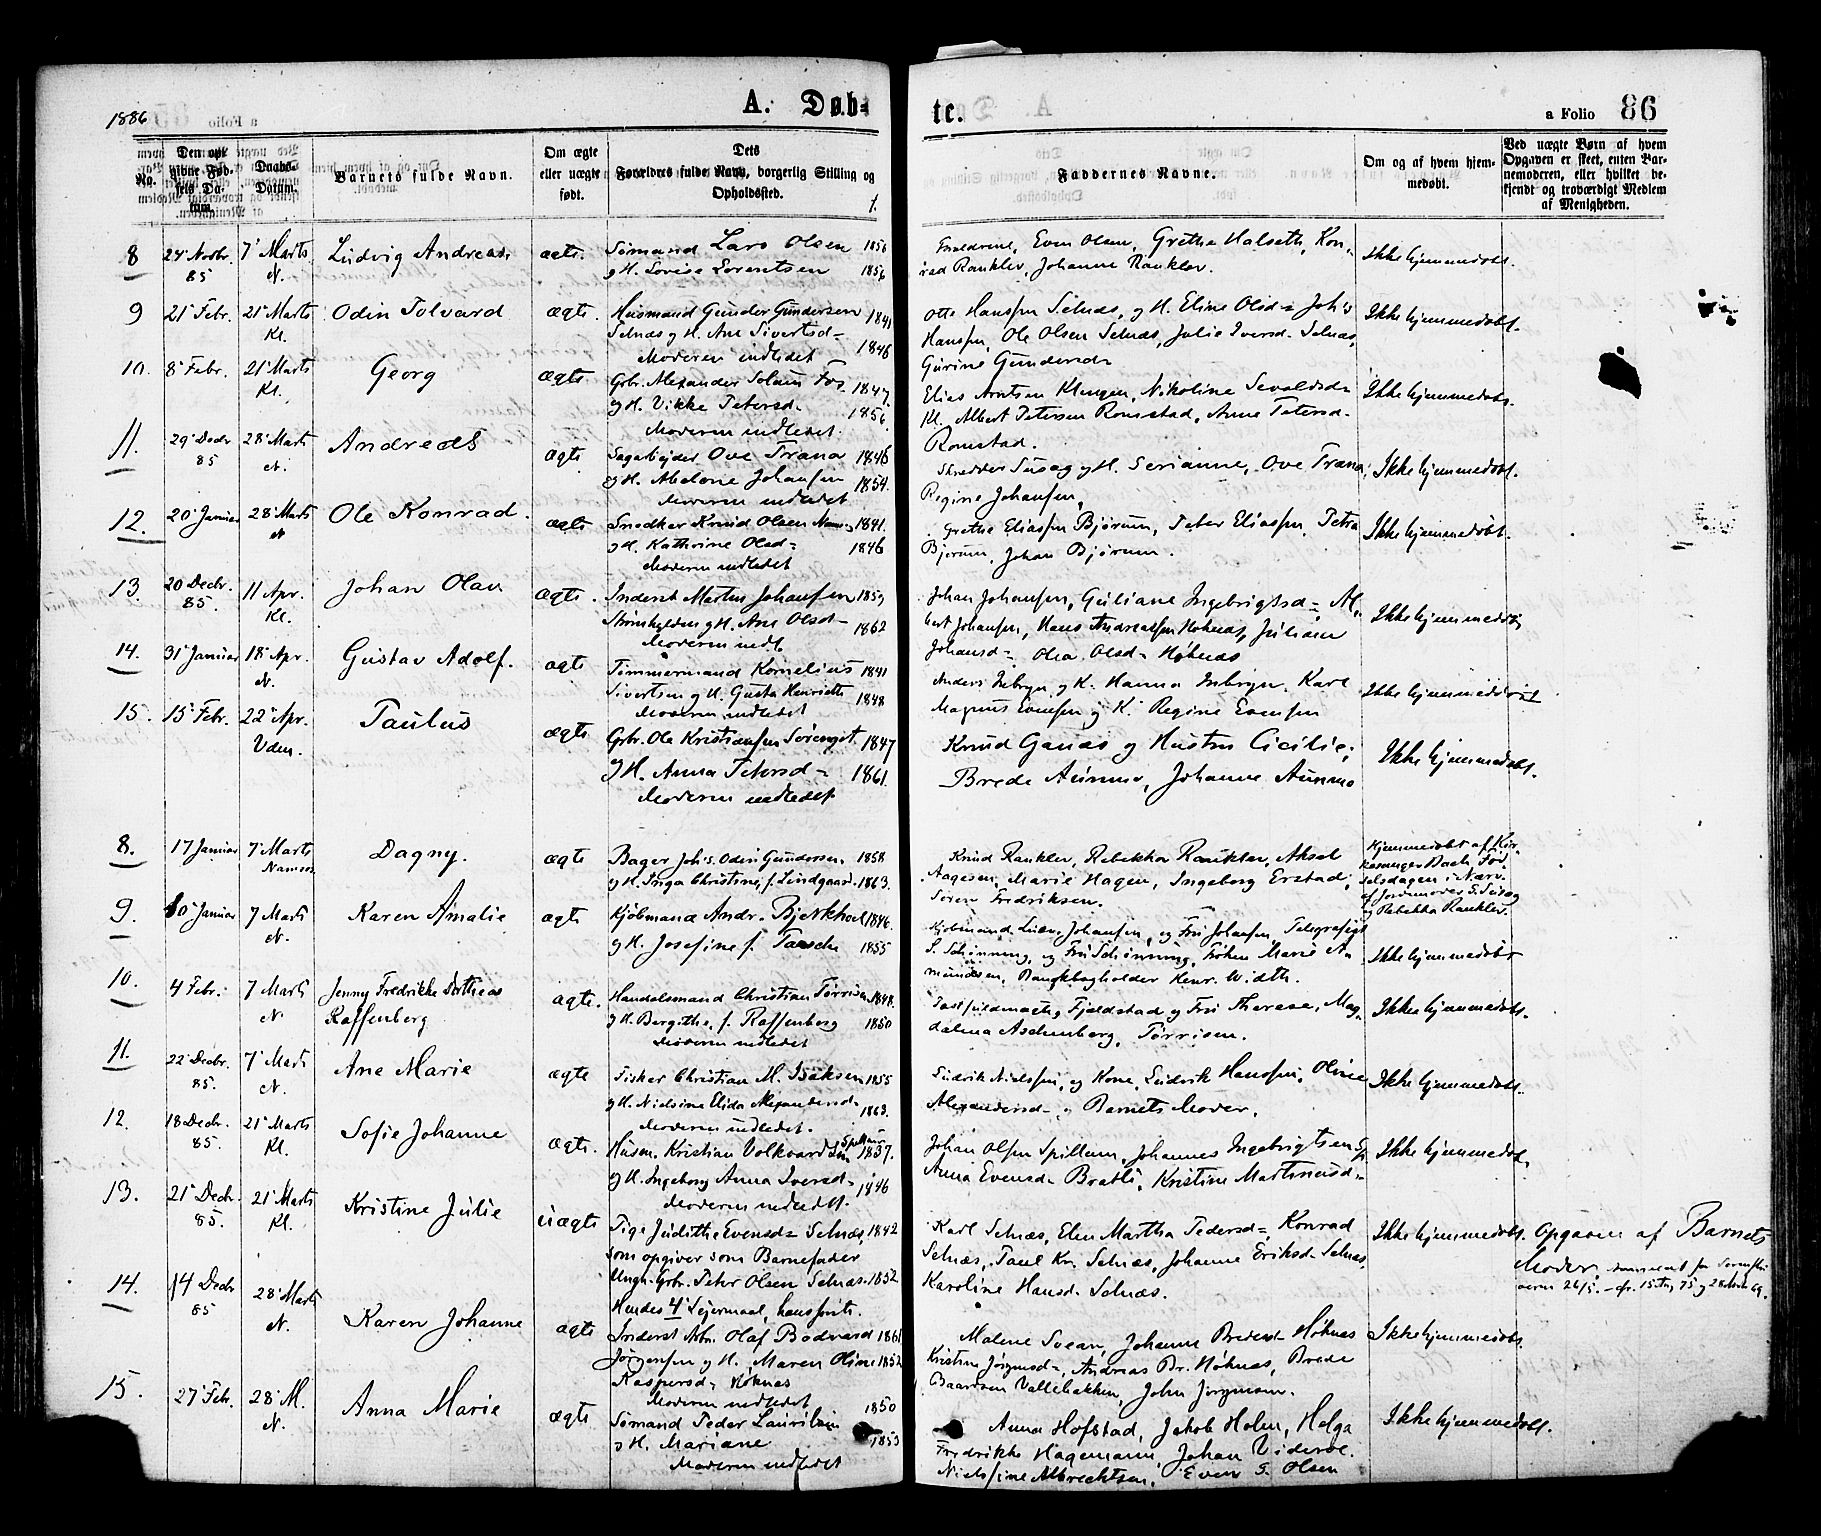 1886
A. Døb-
te.
a Folio 86
No.
Den op-
givne Fød-
sels Da-
tum.
Daabs-
Datum.
Barnets fulde Navn.
Om ægte
eller uægte
født.
Dets
Forældres fulde Navn, borgerlig Stilling og
Opholdssted.
Faddernes Navne.
Om og af hvem hjem-
medøbt.
Ved uægte Børn af hvem
Opgaven er skeet, enten Bar-
nemoderen, eller hvilket be-
kjendt og troværdigt Medlem
af Menigheden.
8 24 Novbr. 85 7 Marts N. Ludvig Andreas. ægte. Sømand Lars Olsen 1856
og H. Lovise Lorentsen 1856
Forældrene, Even Olsen, Grethe Halseth, Kon-
rad Ranklev, Johanne Ranklev.
Ikke hjemmedøbt.
9 21 Febr. 21 Marts Kl. Odin Tolvard ægte. Husmand Gunder Gundersen 1841
Selnæs og H. Ane Sivertsd- 1846
Moderen indledet
Otto Hansen Selnæs, og H. Eline Olsd- Joh's
Hansen, Ole Olsen Selnæs, Julie Iversd. Selnæs,
Gurine Gundersd-
Ikke hjemmedøbt.
10. 8 Febr. 21 Marts Kl. Georg ægte. Grbr. Alexander Solum Fos 1847.
og H. Vikke Petersd- 1856
Moderen indledet.
Elias Arntsen Klingen, Nikoline Sevaldsd-
Kl. Albert Petersen Romstad, Anne Petersd-
Romstad.
Ikke hjemmedøbt.
11. 29 Decbr 85 28 Marts N. Andreas ægte Sagarbejder Ove Trana 1846
og H. Abelone Johansen 1854.
Moderen indledet
Skredder Susag og H. Serianne, Ove Trana,
Regine Johansen,
Ikke hjemmedøbt.
12. 20 Januar 28 Marts N Ole Konrad. ægte Snedker Knud Olsen 1841.
og H. Kathrine Olsd- 1846
Moderen indledet
Grethe Eliassen Bjørum, Peter Eliassen, Petra
Bjørum, Johan Bjørum.
Ikke hjemmedøbt.
13. 20 Decbr. 85. 11 Apr. Kl. Johan Olav ægte. Inderst Martin Johansen 1859
Strømhylden og H. Ane Olsd- 1862
Moderen indl.
Johan Johansen, Guliane Ingebrigtsd-, Al-
bert Johansen, Hans Andreassen Høknes, Julian
Johansd-, Olea Olsd- Høknæs
Ikke hjemmedøbt
14. 31 Januar 18 Apr. N. Gustav Adolf. ægte Tømmermand Kornelius 1841
Sivertsen og H. Gusta Henriette 1848
Moderen indledet
Anders Inbryn og K. Hanna Inbryn, Karl
Magnus Evensen og K. Regine Evensen
Ikke hjemmedøbt
15. 15 Febr. 22 Apr. Uden. Paulus ægte Grbr. Ole Kristiansen 1847
og H. Anna Petersd- 1861.
Moderen indledet
Knud Ganæs og Hustru Cicilie,
Brede Aunmo, Johanne Aunmo
Ikke hjemmedøbt.
8. 17 Januar 7 Marts Namsos Dagny. ægte Bager Joh's. Odin Gundersen 1858
og H. Inga Christine, f. Lindgaard. 1863.
Knud Ranklev, Rebekka Ranklev, Aksel
Aagesen, Marie Hagen, Ingeborg Erstad,
Søren Fredriksen.
Hjemmedøbt af Kir-
kesanger Bach Fød-
selsdagen i Nærv.
af Jordmoder S. Susag
og Rebekka Ranklev.
9. 10 Januar 7 Marts N. Karen Amalie ægte Kjøbmand Andr. Bjerkhoel 1846.
og H. Josefine f. Tasch 1855
Kjøbmand Johansen, og Fru Johansen, Telegrafist
S. Schjønning, og Fru Schjønning, Frøken Marie A-
mundsen, Bankbogholder Henr. Width.
Ikke hjemmedøbt
10. 4 Febr. 7 Marts N Jenny Fredrikke Dorthea
Raffenberg ægte. Handelsmand Christian Tørrisen 1848.
og H. Bergithe, f. Raffenberg 1850
Moderen indledet
Postfuldmægtig Fjeldstad og Fru Therese, Mag-
dalena Aschenberg, Tørrisen.
Ikke hjemmedøbt.
11. 22 Decbr. 85. 7 Marts N. Ane Marie ægte Fisker Christian M. Isaksen 1855
og H. Nielsine Elida Alexandersd- 1863.
Moderen indledet.
Ludvik Nielsen, og Kone, Ludvik Hansen, Oline
Alexandersd- og Barnets Moder.
Ikke hjemmedøbt.
12. 18 Decbr. 85. 21 Marts Kl. Sofie Johanne ægte. Husm. Kristian Volkvardsen Spillum 1837.
og H. Ingeborg Anna Iversd- 1846
Moderen indledet.
Johan Olsen Spillum, Johannes Ingebrigtsen
Anna Evensd- Bratli, Kristine Martinusd-
Ikke hjemmedøbt.
13. 21 Decbr. 85. 21 Marts Kl. Kristine Julie uægte Pige Judithe Evensd- Selnæs, 1842
som opgiver som Barnefader
Ungk. Grbr. Peter Olsen Selnæs. 1852
Hendes 4 Lejermaal, hans første.
Karl Selnæs, Elen Martha Pedersd-, Konrad
Selnæs, Paul Kr. Selnæs, Johanne Eriksd. Selnæs,
Karoline Hansd. Selnæs.
Ikke hjemmedøbt.
Opgaven af Barnets
Moder,
14. 14 Decbr 85 28 Marts N. Karen Johanne ægte Inderst Arb. Olaf Bodvard 1861
Jørgensen og H. Maren Oline 1852
Kaspersd- Høknes
Moderen indledet
Malene Svean, Johanne Bredesd- Høknes
Kristine Jørgensd-, Andreas Br. Høknes, Brede
Baardsen Vallebakken, John Jørgensen.
Ikke hjemmedøbt.
15. 27 Febr. 28 M. N. Anna Marie ægte. Sømand Peder Lauritsen 1850
og H. Mariane 1853
Moderen indledet
Anna Hofstad, Jakob Holm, Helga
Fredrikke Hagemann, Johan Viderøe.
Nielsine Albrechtsen, Even G. Olsen
Ikke hjemmedøbt.